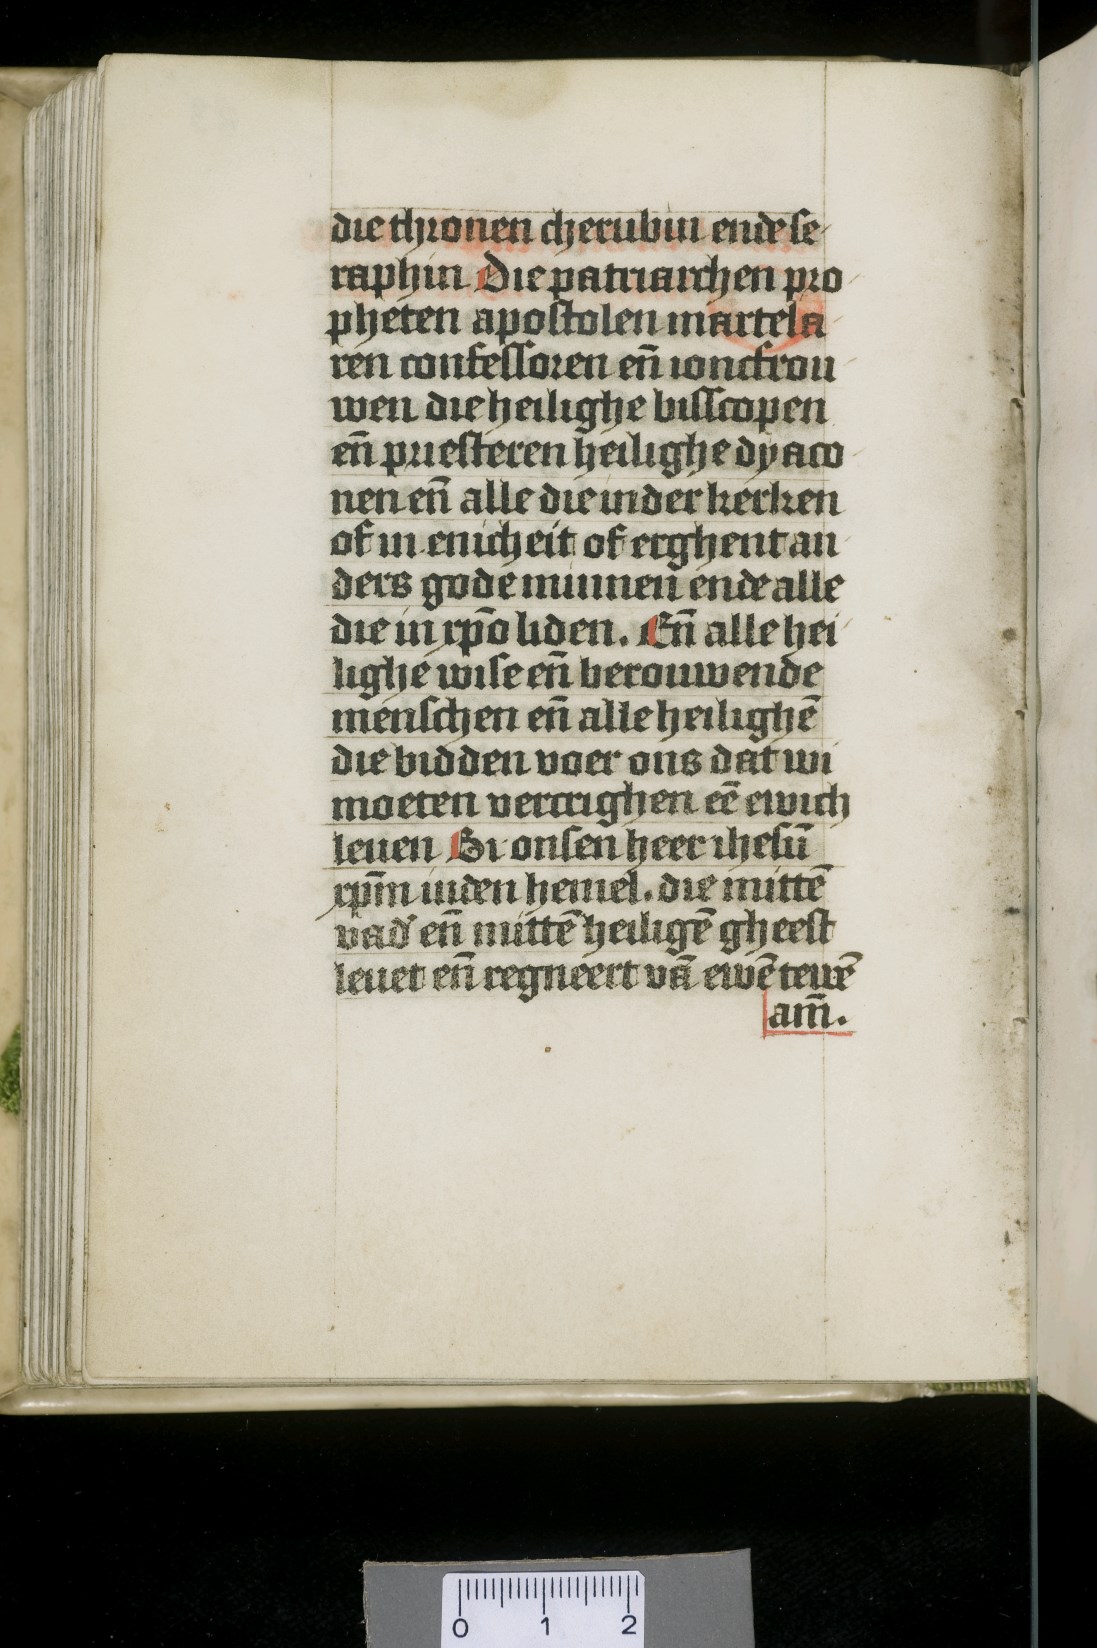 die thronen cherubin ende se
raphin Die patriarchen pro
pheten apostolen martela
ren confessoren eñ ioncfrou
wen die heilighe bisscopen
eñ priesteren heilighe dyaco
nen eñ alle die in der kerken
of in enicheit of erghent an
ders gode minnen ende alle
die in xp̄o liden. Eñ alle hei
lighe wise eñ berouwende
menschen eñ alle heilighē
die bidden voer ons dat wi
moeten vercrighen eē ewich
leuen Bi onsen heer ihesū
xp̄m in den hemel. die mittē
vad' eñ mittē heiligē gheest
leuet eñ regneert vā ewē tewē
am̄.
0 1 2